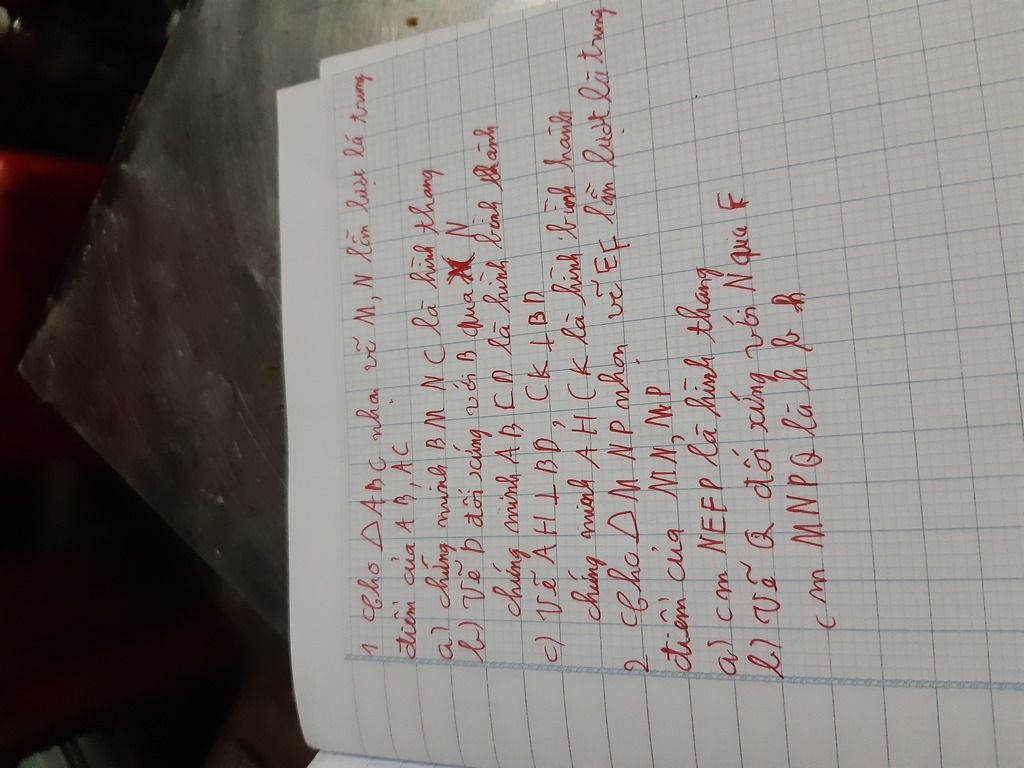 1 Cho △ABC nhọn vẽ M, N lần lượt là trung
điểm của AB, AC
a) chứng minh BMNC là hình thang
b) Vẽ D đối xứng với B qua N
chứng minh ABCD là hình bình thành
c) Vẽ AH⊥BD, CK⊥BD
chứng minh AHCK là hình bình hành
2 Cho △MNP nhọn vẽ EF lần lượt là trung
điểm của MN, MP
a) cm NEFP là hình thang
b) Vẽ Q đối xứng với N qua F
cm MNPQ là h b h